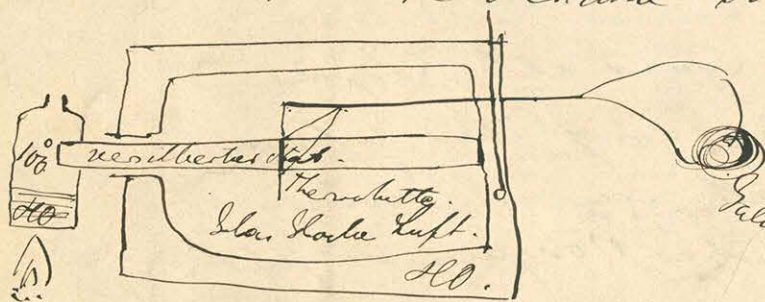 100°
versilberter Stab.
HO
Thermokette.
Glas Glocke Luft.
HO.
Galv